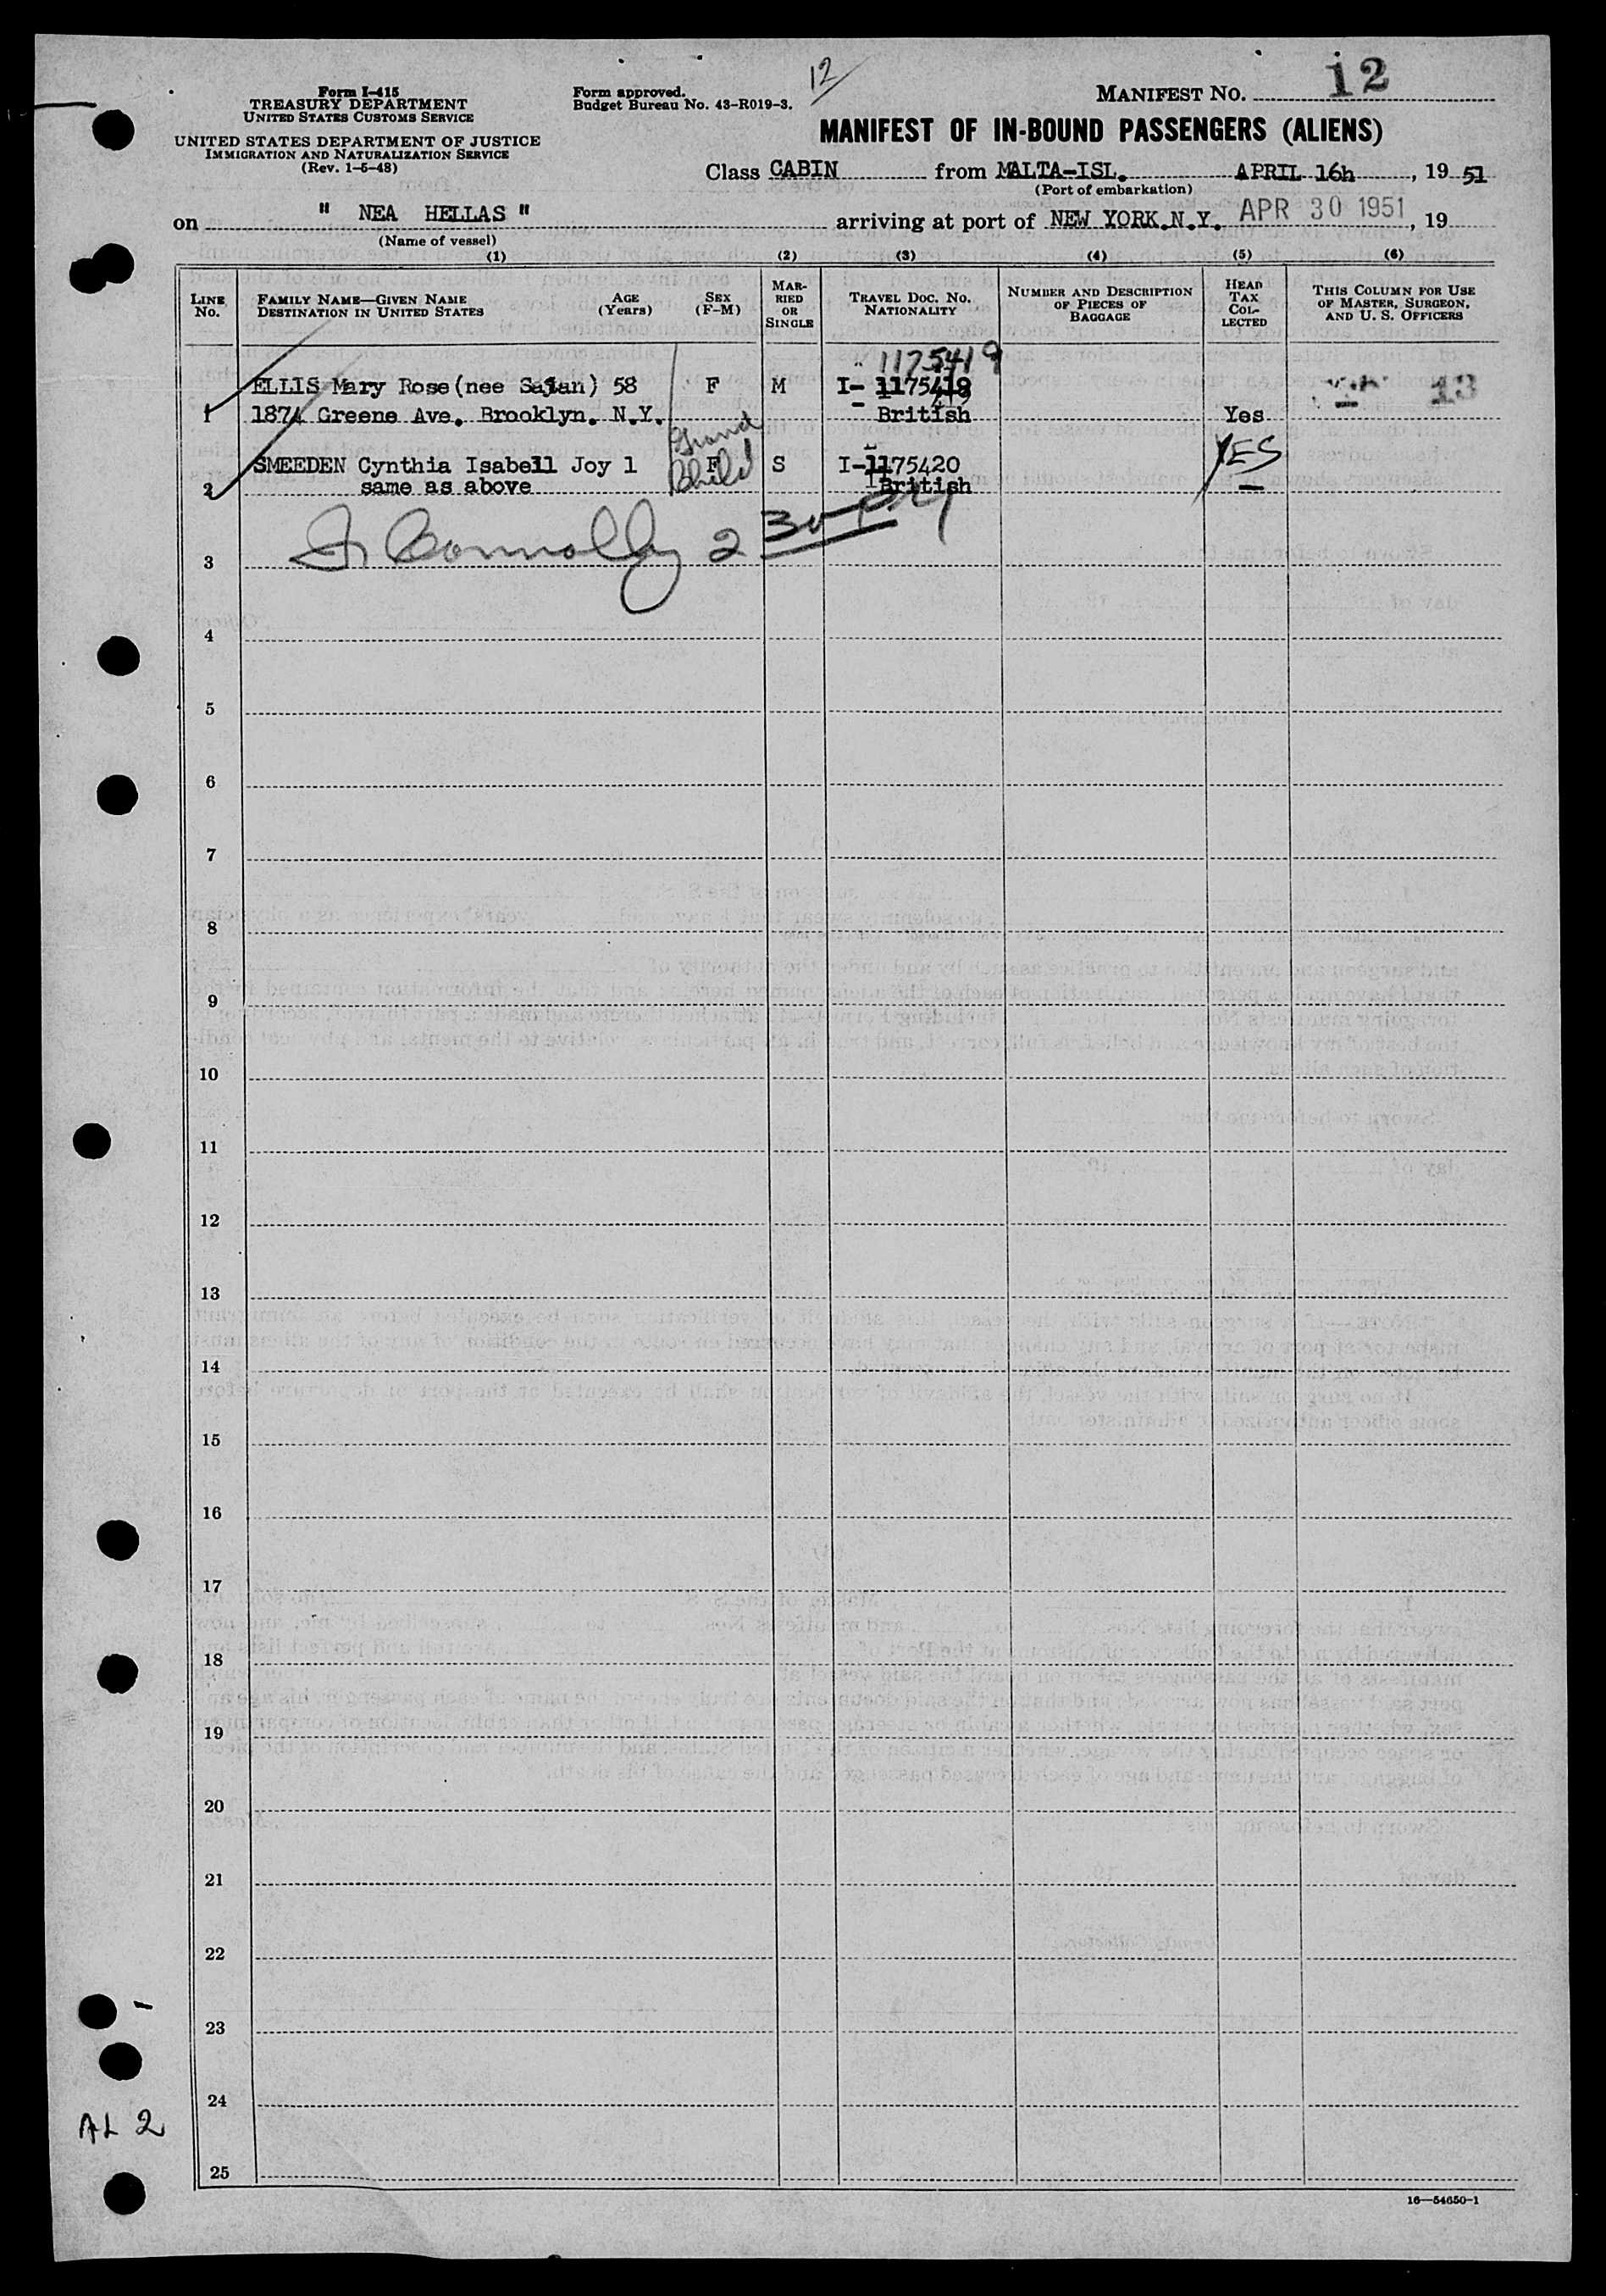 12
Form I-415
TREASURY DEPARTMENT
UNITED STATES CUSTOMS SERVICE
UNITED STATES DEPARTMENT OF JUSTICE
IMMIGRATION AND NATURALIZATION SERVICE
(Rev. 1-5-48)
Form approved.
Budget Bureau No. 43-R019-3.
MANIFEST NO. 12
MANIFEST OF IN-BOUND PASSENGERS (ALIENS)
Class CABIN from MALTA-ISL. APRIL 16h, 19 51
(Port of embarkation)
on " NEA HELLAS " arriving at port of NEW YORK.N.Y. APR 30 1951, 19
(Name of vessel)
(1) (2) (3) (4) (5) (6)
LINE No. FAMILY NAME—GIVEN NAME DESTINATION IN UNITED STATES AGE (Years) SEX (F-M) MARRIED OR SINGLE TRAVEL DOC. NO. NATIONALITY NUMBER AND DESCRIPTION OF PIECES OF BAGGAGE HEAD TAX COLLECTED THIS COLUMN FOR USE OF MASTER, SURGEON, AND U. S. OFFICERS
1175419
ELLIS Mary Rose (nee 58 F M I- 13
1 1874 Greene Ave. Brooklyn. N.Y. British Yes
Grand Child
SMEEDEN Cynthia Isabell Joy 1 F S I-1175420 YES
2 same as above British —
Connolly 2 30
3
4
5
6
7
8
9
10
11
12
13
14
15
16
17
18
19
20
21
22
23
24
25
AL 2
16—54650-1